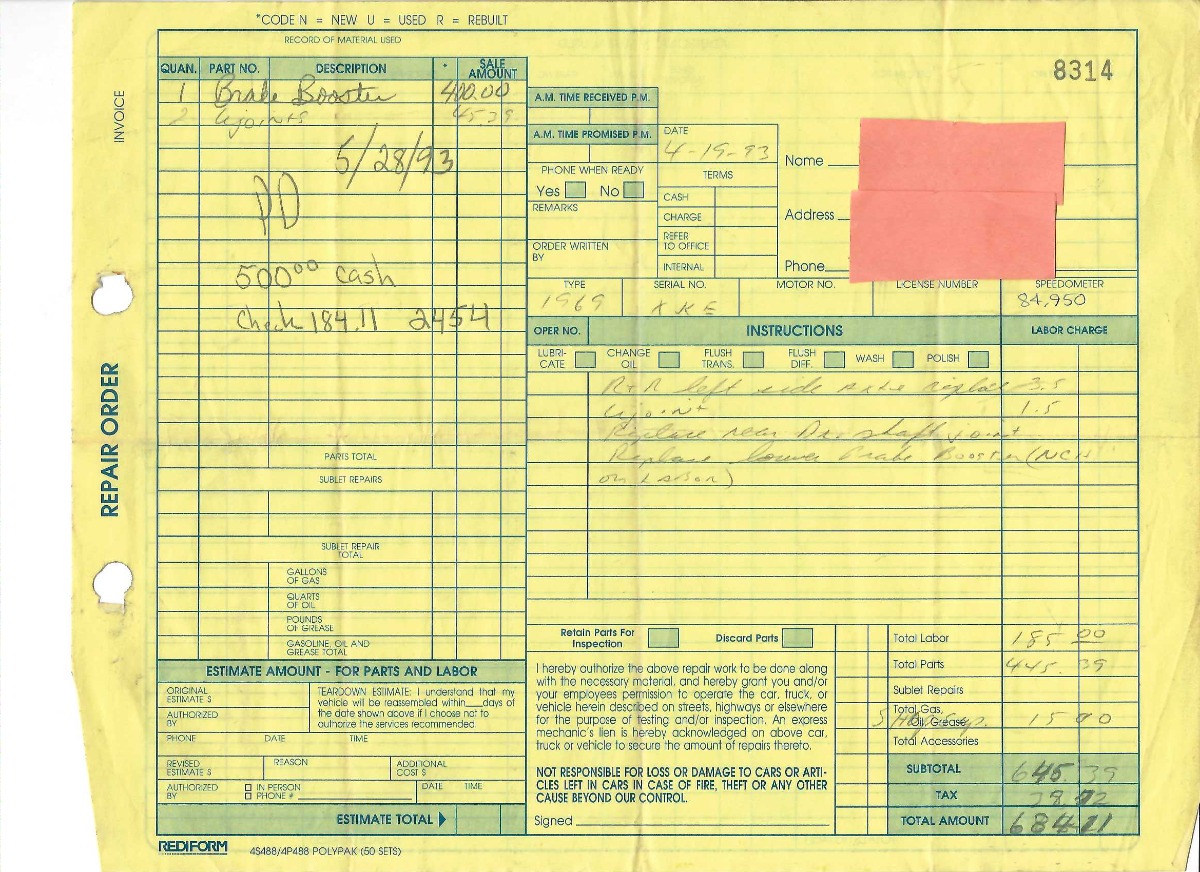 *CODE N = NEW U = USED R = REBUILT
RECORD OF MATERIAL USED
QUAN. PART NO. DESCRIPTION * SALE AMOUNT
1 Brake Booster 400.00
2 ujoints 45.39
5/28/93
PD
500⁰⁰ cash
Check 184.11 2454
PARTS TOTAL
SUBLET REPAIRS
SUBLET REPAIR
TOTAL
GALLONS
OF GAS
QUARTS
OF OIL
POUNDS
OF GREASE
GASOLINE, OIL AND
GREASE TOTAL
ESTIMATE AMOUNT - FOR PARTS AND LABOR
ORIGINAL
ESTIMATE $
AUTHORIZED
BY
TEARDOWN ESTIMATE: I understand that my
vehicle will be reassembled within___days of
the date shown above if I choose not to
authorize the services recommended.
PHONE DATE TIME
REVISED
ESTIMATE $
REASON
ADDITIONAL
COST $
AUTHORIZED
BY
IN PERSON
PHONE #
DATE TIME
ESTIMATE TOTAL
REDIFORM
4S488/4P488 POLYPAK (50 SETS)
INVOICE
REPAIR ORDER
8314
A.M. TIME RECEIVED P.M.
A.M. TIME PROMISED P.M.
DATE
4-19-93
PHONE WHEN READY
Yes No
REMARKS
ORDER WRITTEN
BY
TERMS
CASH
CHARGE
REFER
TO OFFICE
INTERNAL
Name
Address
Phone
TYPE SERIAL NO. MOTOR NO. LICENSE NUMBER SPEEDOMETER
1969 XKE 84,950
OPER NO. INSTRUCTIONS LABOR CHARGE
LUBRI-
CATE
CHANGE
OIL
FLUSH
TRANS.
FLUSH
DIFF.
WASH
POLISH
R+R left side axle replace 3.5
ujoint 1.5
Replace rear Dr. shaft joint
Replace lower Brake Booster (NCH
on Labor)
Retain Parts For
Inspection
Discard Parts
I hereby authorize the above repair work to be done along
with the necessary material, and hereby grant you and/or
your employees permission to operate the car, truck, or
vehicle herein described on streets, highways or elsewhere
for the purpose of testing and/or inspection. An express
mechanic's lien is hereby acknowledged on above car,
truck or vehicle to secure the amount of repairs thereto.
NOT RESPONSIBLE FOR LOSS OR DAMAGE TO CARS OR ARTI-
CLES LEFT IN CARS IN CASE OF FIRE, THEFT OR ANY OTHER
CAUSE BEYOND OUR CONTROL.
Signed
Total Labor 185 00
Total Parts 445.39
Sublet Repairs
Total Gas,
Oil, Grease 15 00
Total Accessories
SUBTOTAL 645.39
TAX
TOTAL AMOUNT 684.11